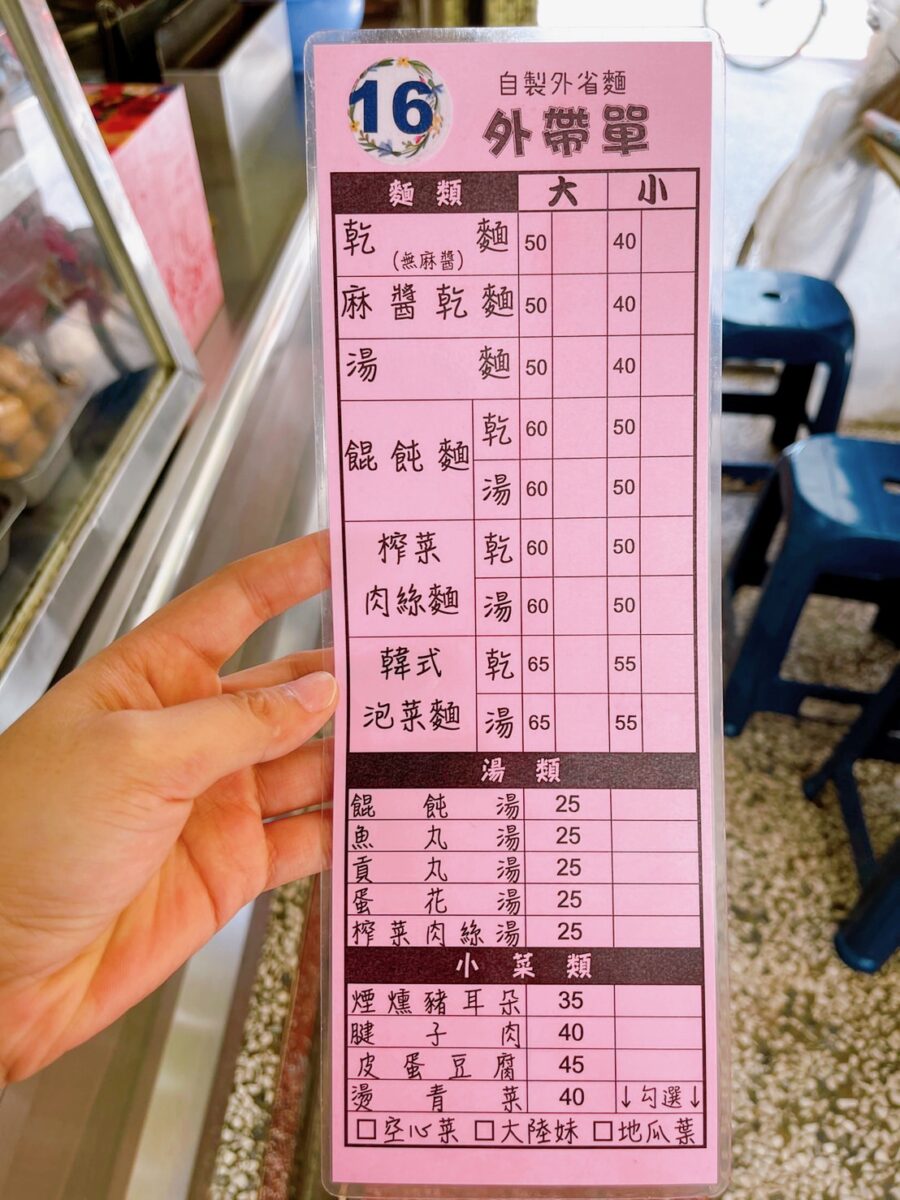 16
自製外省麵
外帶單
麵類 大 小
乾麵 50 40
(無麻醬)
麻醬乾麵 50 40
湯麵 50 40
餛飩麵 乾 60 50
湯 60 50
榨菜 乾 60 50
肉絲麵 湯 60 50
韓式 乾 65 55
泡菜麵 湯 65 55
湯類
餛飩湯 25
魚丸湯 25
貢丸湯 25
蛋花湯 25
榨菜肉絲湯 25
小菜類
煙燻豬耳朵 35
腱子肉 40
皮蛋豆腐 45
燙青菜 40 ↓勾選↓
□空心菜 □大陸妹 □地瓜葉